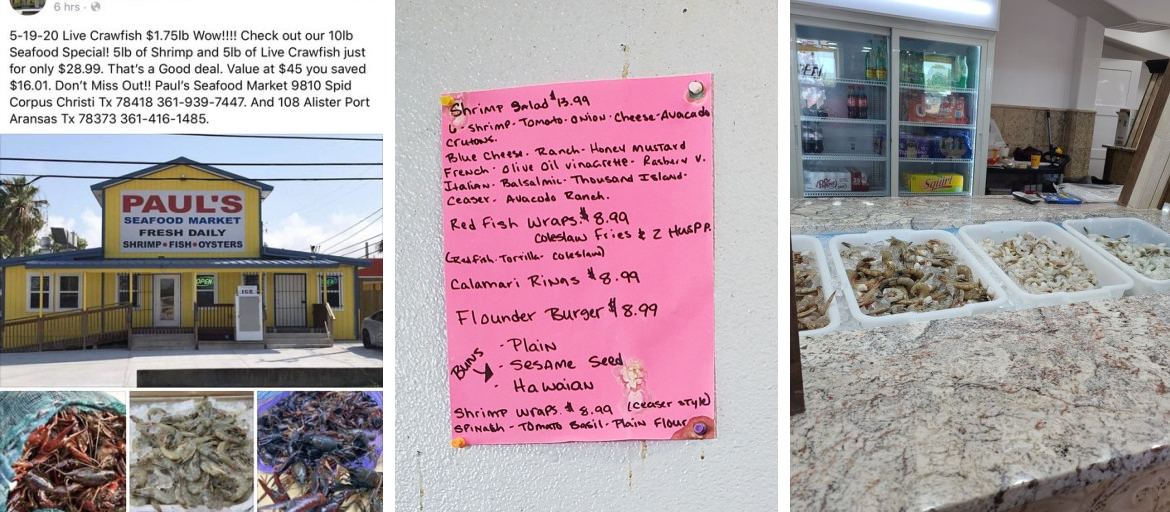 6 hrs ·
5-19-20 Live Crawfish $1.75lb Wow!!!! Check out our 10lb
Seafood Special! 5lb of Shrimp and 5lb of Live Crawfish just
for only $28.99. That's a Good deal. Value at $45 you saved
$16.01. Don't Miss Out!! Paul's Seafood Market 9810 Spid
Corpus Christi Tx 78418 361-939-7447. And 108 Alister Port
Aransas Tx 78373 361-416-1485.
PAUL'S
SEAFOOD MARKET
FRESH DAILY
SHRIMP•FISH•OYSTERS
OPEN
ICE
Shrimp Salad $13.99
6-Shrimp-Tomato-Onion-Cheese-Avacado
Crutons.
Blue Cheese. Ranch-Honey Mustard
French-Olive Oil vinagrette-Rasbery V.
Italian-Balsalmic-Thousand Island-
Ceaser-Avacodo Ranch.
Red Fish Wraps.$8.99
Coleslaw Fries & 2 HusPP.
(Redfish-Torrilla-Coleslaw)
Calamari Rings $8.99
Flounder Burger $8.99
Buns
-Plain
-Sesame Seed
-Hawaian
Shrimp Wraps.$8.99 (Ceaser style)
Spinash-Tomato Basil-Plain Flour
Dr Pepper
Squirt